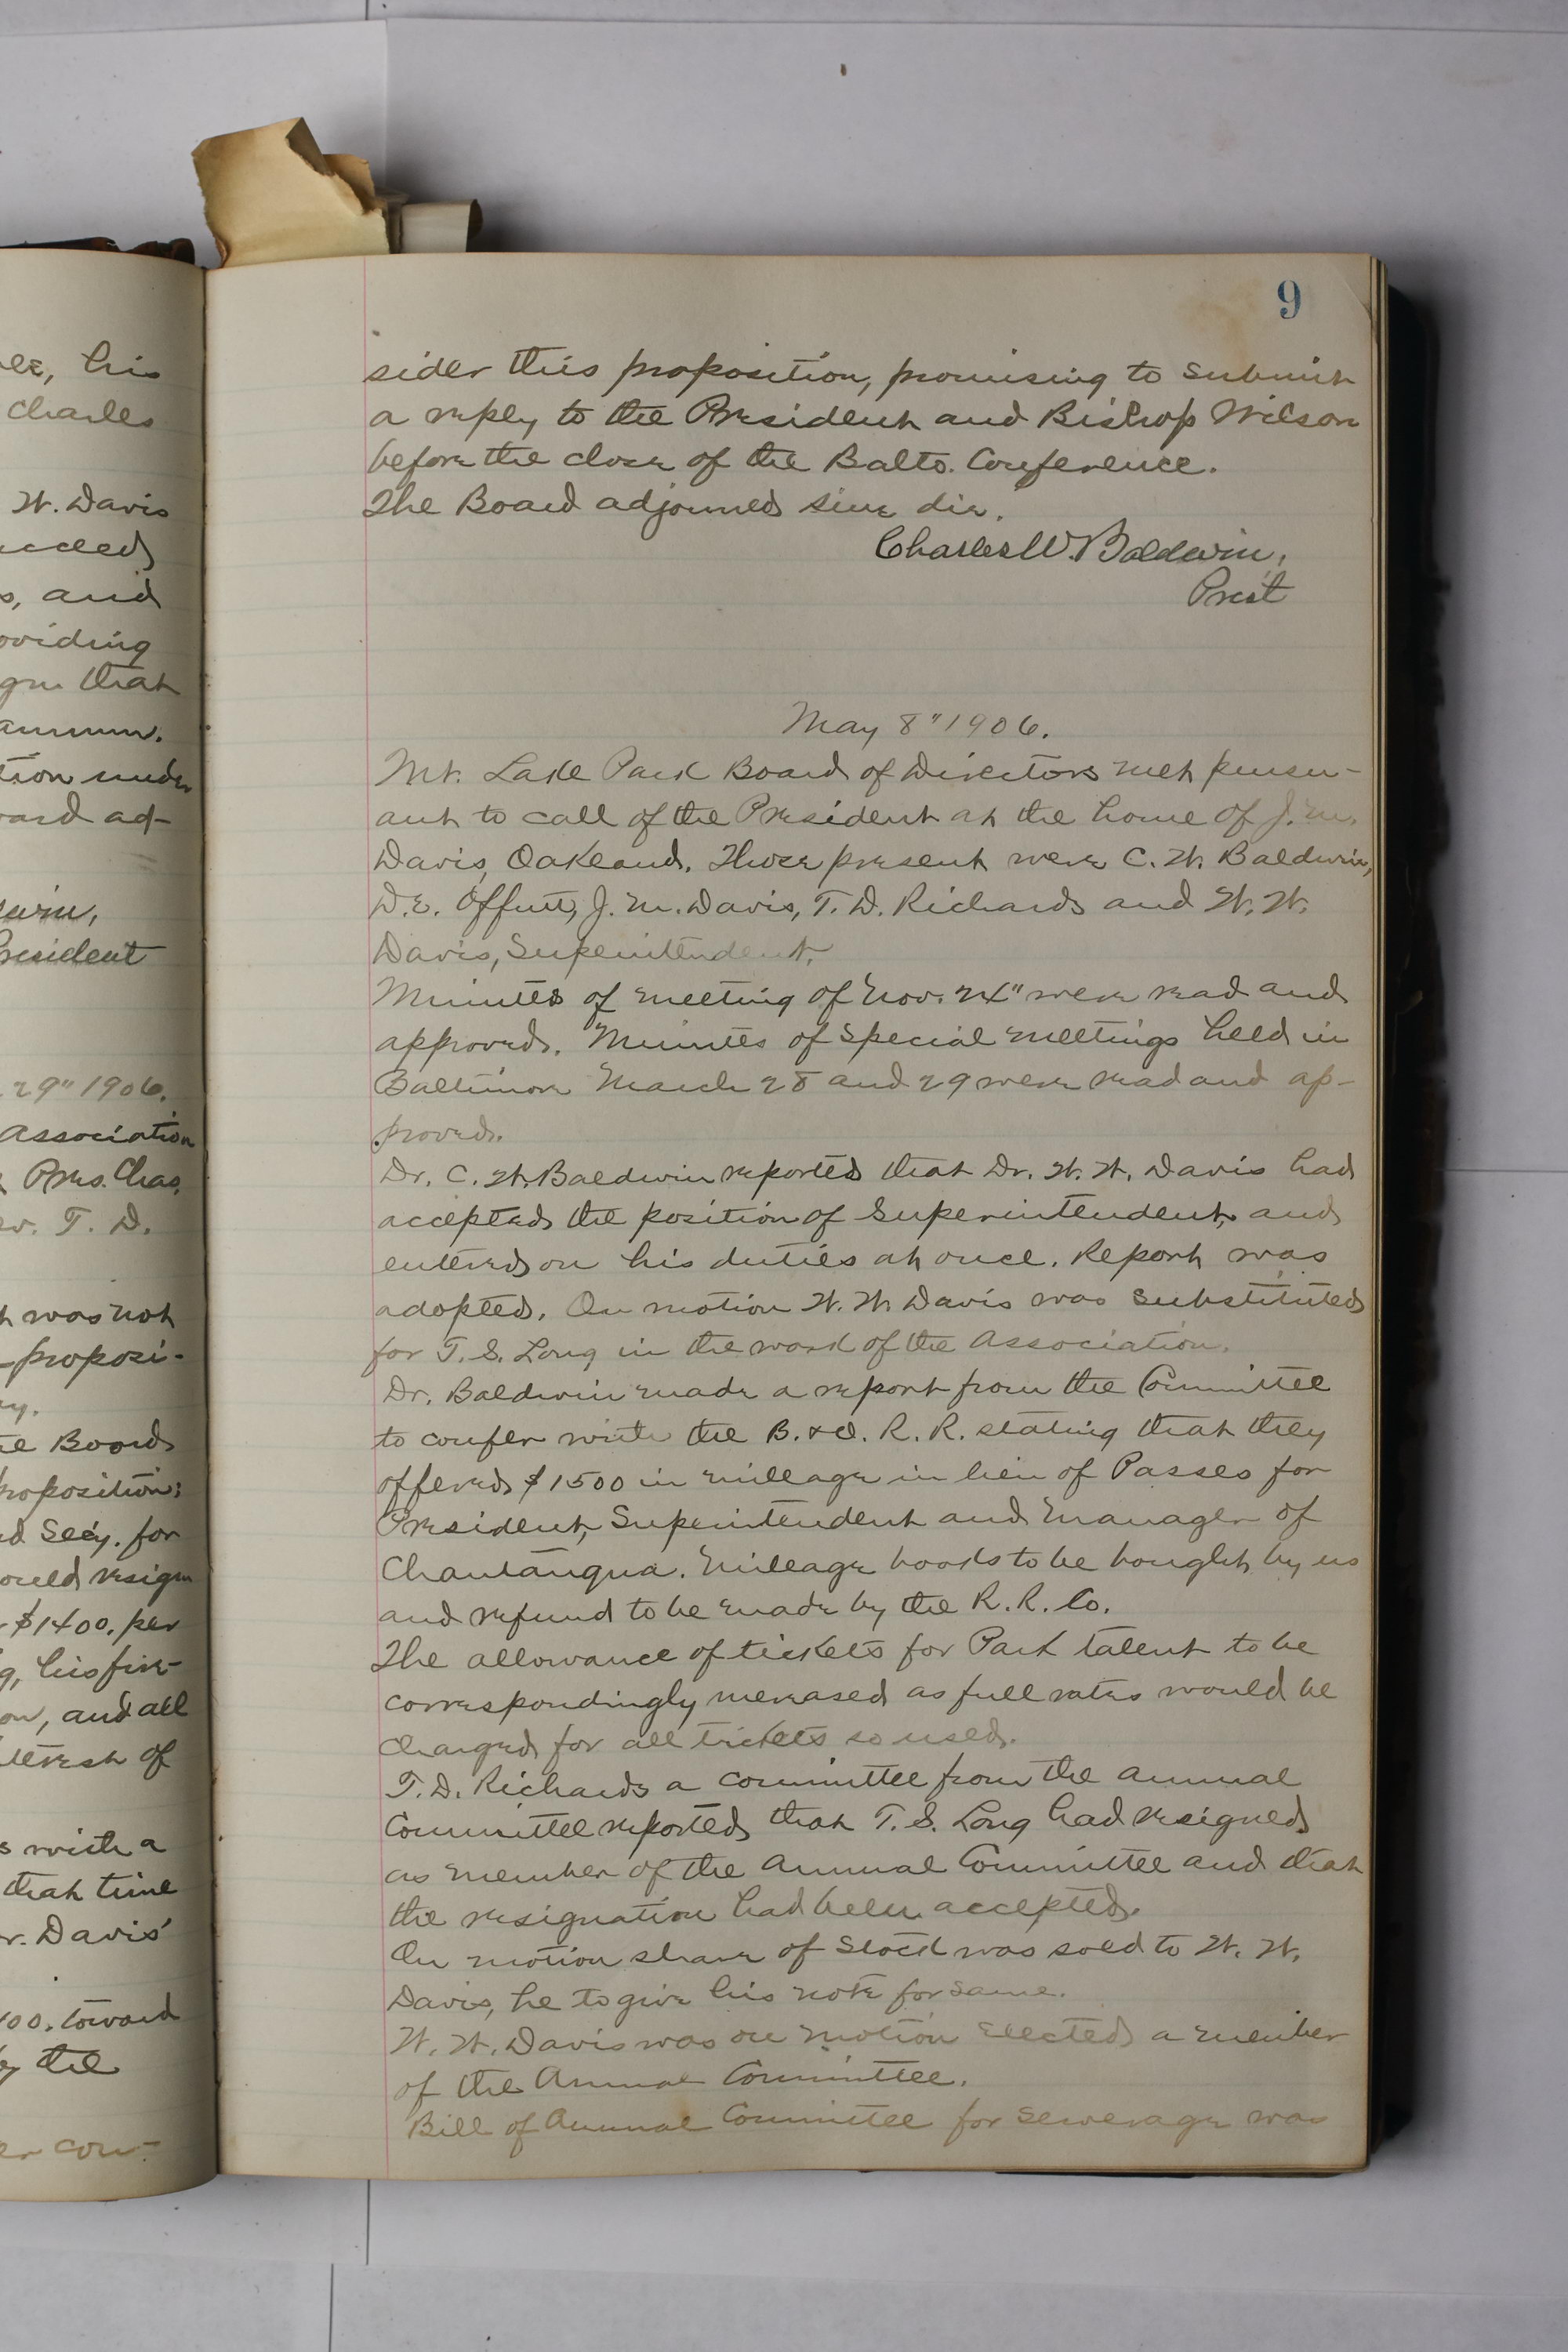 ee, his
Charles
W. Davis
cceed
s, and
oviding
gn that
annum.
tion under
oard ad-
dwin,
President
29" 1906.
Association
Pres. Chas.
ev. T. D.
h was not
proposi-
ry.
he Board
proposition:
nd Secy. for
ould resign
$1400. per
g, his five-
on, and all
terest of
s with a
that time
r. Davis'
00. toward
by the
er con-
9
sider this proposition, promising to submit
a reply to the President and Bishop Wilson
before the close of the Balto. Conference.
The Board adjourned sine die.
Charles W. Baldwin,
Prest
May 8" 1906.
Mt. Lake Park Board of Directors met pursu-
ant to call of the President at the home of J. M.
Davis, Oakland. Those present were C. W. Baldwin,
D. E. Offutt, J. M. Davis, T. D. Richards and W. W.
Davis, Superintendent.
Minutes of meeting of Nov. 24" were read and
approved. Minutes of special meetings held in
Baltimore March 28 and 29 were read and ap-
proved.
Dr. C. W. Baldwin reported that Dr. W. W. Davis had
accepted the position of Superintendent, and
entered on his duties at once. Report was
adopted. On motion W. W. Davis was substituted
for T. S. Long in the work of the Association.
Dr. Baldwin made a report from the Committee
to confer with the B. & O. R. R. stating that they
offered $1500 in mileage in lieu of Passes for
President, Superintendent and Manager of
Chautauqua. Mileage books to be bought by us
and refund to be made by the R. R. Co.
The allowance of tickets for Park talent to be
correspondingly increased as full rates would be
charged for all tickets so used.
T. D. Richards a committee from the annual
Committee reported that T. S. Long had resigned
as member of the Annual Committee and that
the resignation had been accepted.
On motion share of Stock was sold to W. W.
Davis, he to give his note for same.
W. W. Davis was on motion elected a member
of the Annual Committee.
Bill of Annual Committee for sewerage was